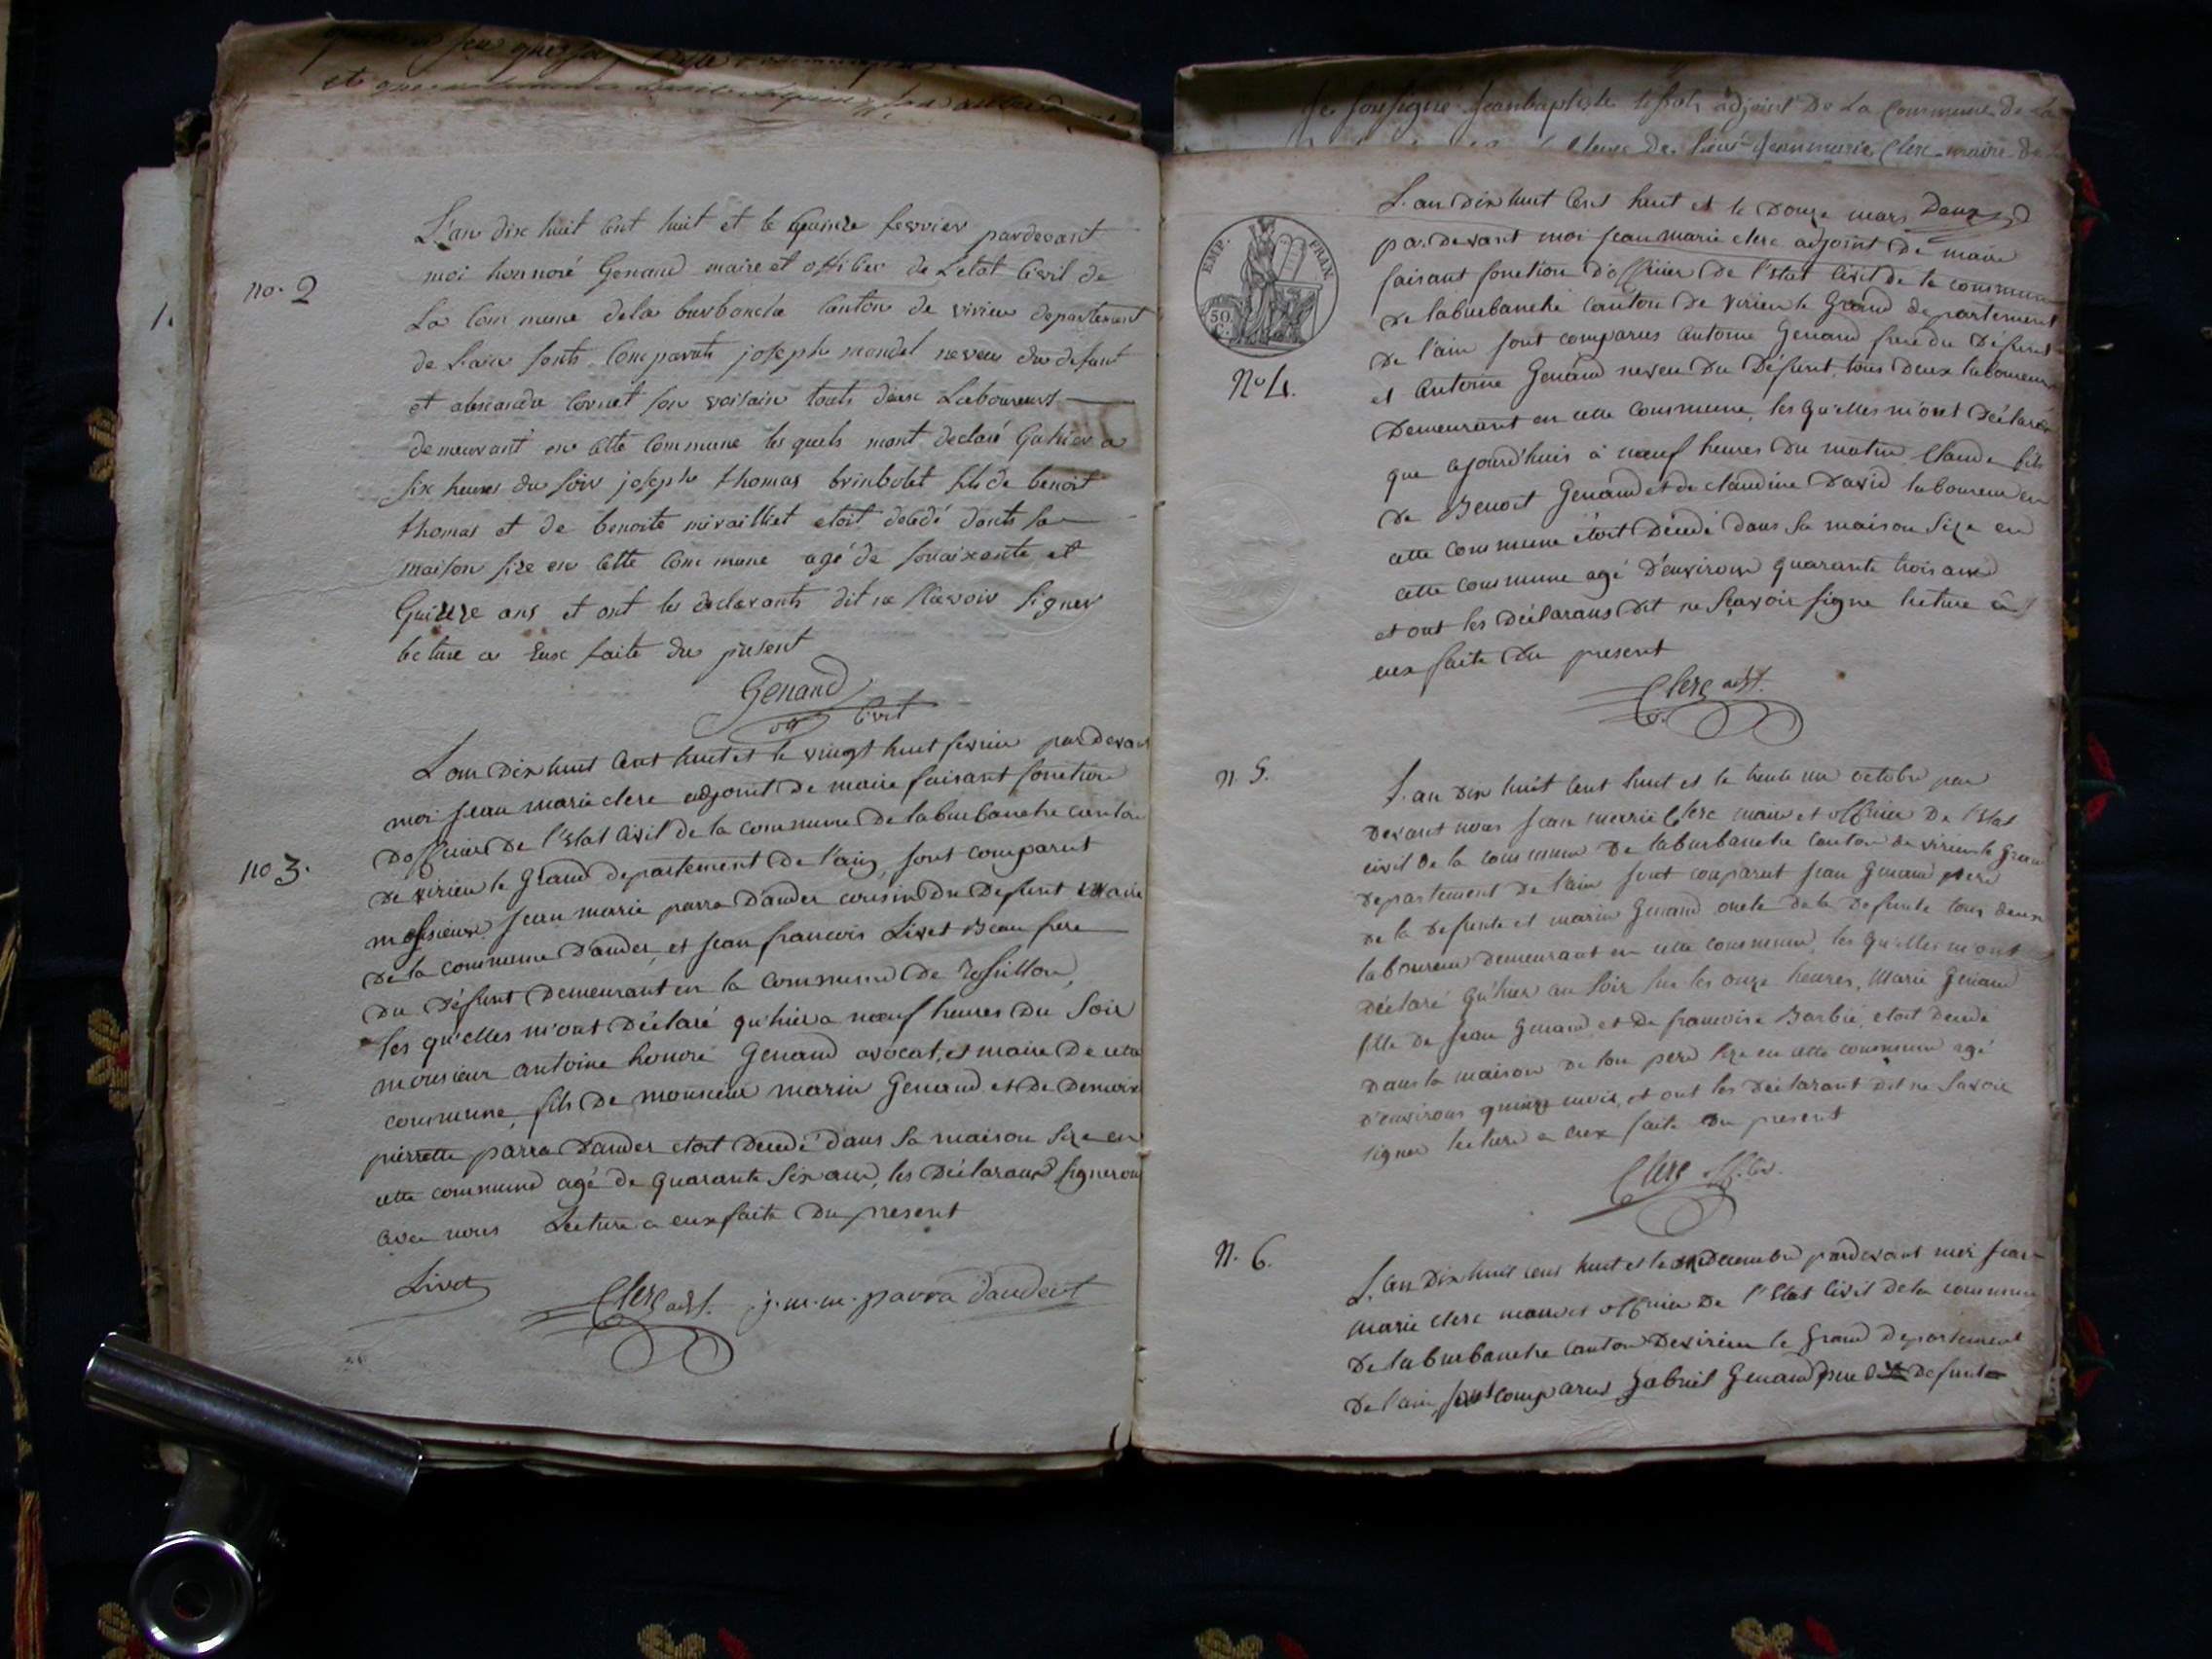 no. 2
L'an dix huit cent huit et le quinze fevrier pardevant
moi honnoré Genand maire et officier de Letat Civil de
La Commune dela burbanche Canton de virieu departement
de Lain sonts Comparuts joseph mondel neveu du defunt
et alexandre Cornet son voisain touts deux Laboureurs
demeurant en cette Commune les quels mont declaré Qu'hier a
six heures du soir joseph thomas brinbolet fils de benoit
thomas et de benoite mirailliet etoit decedé dants sa
maison size en cette Commune agé de souaixente et
Quinze ans et ont les declarants dit ne sçavoir signer
lecture a Eux faite du present
Genand
off Civil
no 3.
L'an Dix huit Cent huit et le vingt huit fevrier pardevant
moi Jean marie clerc adjoint De maire faisant fonction
D'officier De l'Etat Civil de la commune De laburbanche canton
De virieu le Grand departement De l'ain, sont comparut
messieurs Jean marie parra D'andert cousin Du Defunt maire
De la commune D'andert, et Jean francois Livet Beau frere
Du Défunt Demeurant en la commune De Rossillon,
les qu'elles m'ont Déclaré qu'hier a neuf heures Du Soir
monsieur antoine honoré Genand avocat, et maire De cette
commune, fils De monsieur marin Genand et De
pierrette parra Dandert etoit Decedé dans sa maison Size en
cette commune agé de quarante Six ans, les Déclarans Signeront
avec nous Lecture a eux faite Du present
Livet
Clerc adjt. j. m. m. parra dandert
Je soussigné Jeanbaptiste adjoint De La Commune de La
de Sieur Jeanmarie Clerc maire de
EMP. FRAN.
50 C.
No 4.
L'an Dix huit Cent huit et le Douze mars
par devant moi Jean marie clerc adjoint De maire
faisant fonction d'officier De l'Etat Civil de la commune
De laburbanche Canton De virieu le Grand departement
De l'ain sont comparus antoine Genand frere du Défunt
et antoine Genand neveu Du Défunt, tous Deux laboureurs
Demeurant en cette commune, les qu'elles m'ont Déclaré
que ajourd'huis à neuf heures Du matin Claude fils
De Benoit Genand et de claudine David laboureur en
cette commune étoit Décedé dans sa maison Size en
cette commune agé D'environ quarante trois ans
et ont les Déclarans dit ne Sçavoir signe lecture à
eux faite Du present
Clerc adjt.
n. 5.
L'an dix huit Cent huit et le trente un octobre par
Devant nous Jean marie Clerc maire et officier De l'Etat
civil De la commune De laburbanche Canton de virieu le Grand
Departement De l'ain sont comparut Jean Genand pere
De la Defunte et marin Genand oncle de la Defunte tous deux
laboureur demeurant en cette commune, les qu'elles m'ont
Déclaré qu'hier au Soir sur les onze heures, Marie Genand
fille De Jean Genand et De francoise Barbié, etoit Decedé
Dans la maison De son pere Size en cette commune agé
D'environs quinze mois, et ont les Déclarant dit ne Savoir
signer lecture a eux faite Du present
Clerc off. Civ.
N. 6.
L'an Dix huit cent huit et le decembre pardevant moi Jean
Marie clerc maire et officier De l'Etat Civil Dela commune
De laburbanche Canton De virieu le Grand Departement
De l'ain, sont comparus Gabriel Genand pere Defunte